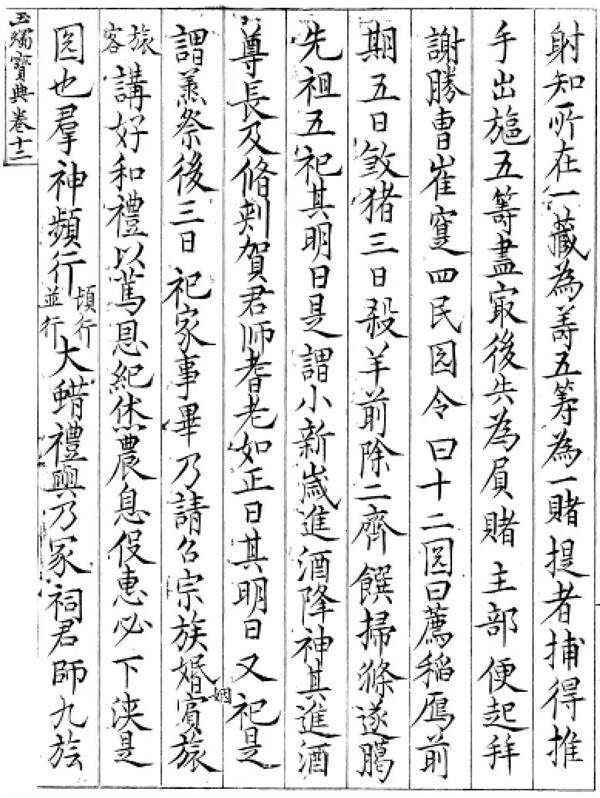 射知所在一藏為壽五筭為一賭提者捕得推
手出施五等盡冣後失為屓賭主部便起拜
謝勝曹崔寔四民囝令曰十二囝曰薦稻鴈前
期五日煞猪三日殺羊前除二齊饌掃滌遂臈
先祖五祀其明日是謂小新歲進酒降神其進酒
尊長及脩刾賀君师耆老如正日其明日又祀是
謂蒸祭後三日祀家事畢乃請召宗族婚姻賔旅
旅客講好和禮以篤恩紀休農息役惠必下浹是
囝也羣神頻行頻行並行大蜡禮興乃冢祠君師九族
玉燭寶典卷十二